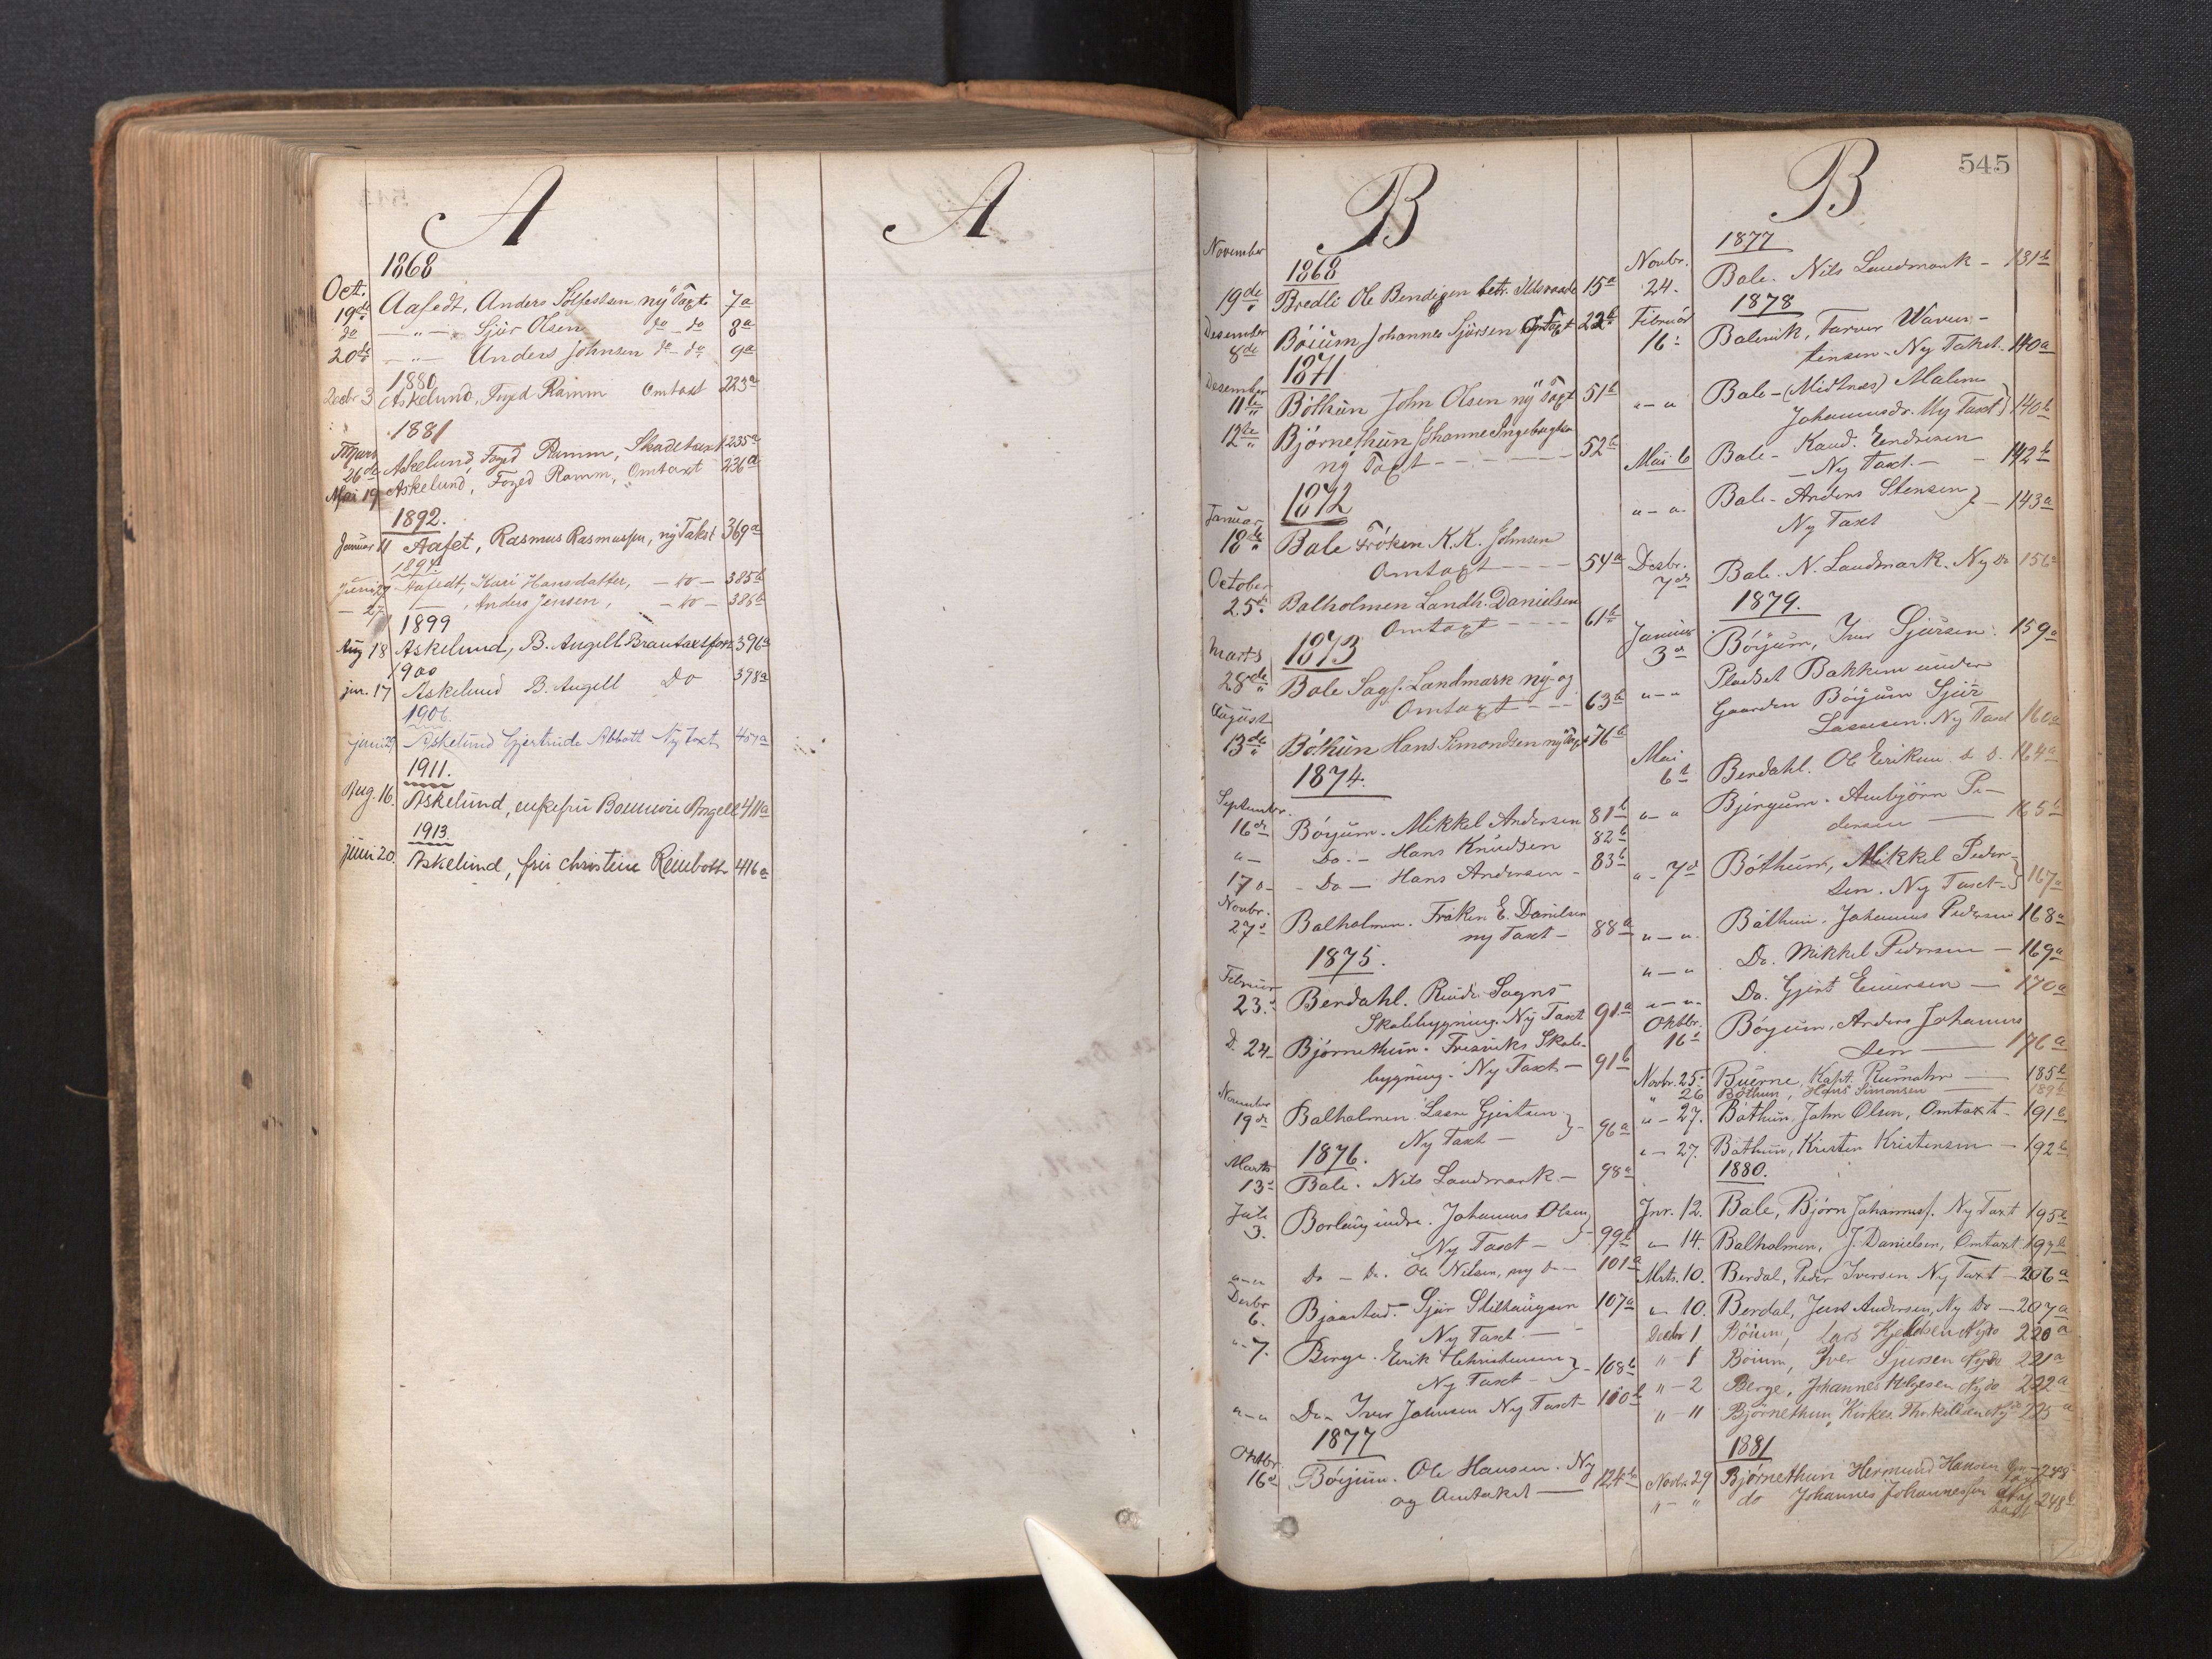 A
1868
Oct.
19de Aafedt, Anders Solfestsen, ny Taxt 7a
do — " — Sjur Olsen do do 8a
20de — " — Anders Johnsen do do 9a
1880
Decbr 3 Askelund, Foged Ramm Omtaxt 223a
1881
Marts 26de Askelund, Foged Ramm, Skadetaxt 235a
Mai 19 Askelund, Foged Ramm, Omtaxt 236a
1892.
Januar 11 Aafet, Rasmus Rasmussen, ny Takst 369a
1897.
Juni 27 Aafedt, Kari Hansdatter, — " — 385b
— 27 — , Anders Jensen, — " — 386b
1899
Aug 18 Askelund, B. Angell Brantaxtforr 396a
1900
jun. 17 Askelund B. Angell Do 398a
1906.
juni 29 Askelund Gjertrude Abbott Ny Taxt 401a
1911.
Aug. 16. Askelund, enkefru Angell 411a
1913.
juni 20. Askelund, fru Christine Reinbolt 416a
A
B
November
1868
19de Bredli Ole Bendixen betr. Ildsvaade 15a
Desember
8de Böium Johannes Sjursen Omtaxt 22b
1871
Desember
11te Böthun John Olsen ny Taxt 51b
12te Björnethun Johanne Ingebrigtsen
ny Taxt - - - - 52b
1872
Januar
18de Bale Fröken K. K. Johnsen
Omtaxt - - - - 54a
October
25de Balholmen Landh. Danielsen
Omtaxt - - - - 61b
1873
Marts
28de Bale Sagf. Landmark ny- og
Omtaxt - - - 63b
August
13de Böthun Hans Simondsen ny Taxt 76b
1874.
September.
16de Böyum. Mikkel Andersen 81b
" — Do. — Hans Knudsen 82b
17 d - - Do — Hans Andersen - 83b
Novbr.
27d Balholmen. Frøken E. Danielsen
ny Taxt — 88a
1875.
Februar
23. Berdahl. Sogns
Skolebygning. Ny Taxt 91a
D. 24 Björnethun. Fresviks Skole-
bygning. Ny Taxt — 91b
November
19de Balholmen. Lasse Gjertsen
Ny Taxt — 96a
1876.
Marts
13d Bale. Nils Landmark — 98a
Juli
3. Borlaug indre. Johannes Olsen
Ny Taxt — 99b
" — " Do — Do. Ole Nilsen, ny do — 101a
Decbr
6. Bjaastad. Sjur Stilhaugsen 107a
Ny Taxt. —
" 7. Berge. Erik Christensen
Ny Taxt — 108b
" — " Do — Iver Johnsen Ny Taxt 110b
1877
Oktbr.
16d Böyum. Ole Hansen. Ny
og Omtakst — 124b
B
545
1877
Novbr.
24. Bale. Nils Landmark — 131b
1878
Februar
16d Balevik, Farver Waren-
tinsen. Ny Takst. 140a
" — " Bale — (Midtnæs) Malene
Johannesdr. Ny Taxt 140b
Mai 6 Bale — Kand. Endresen
— Ny Taxt. — 142b
" — " Bale — Anders Stensen
Ny Taxt — 143a
Desbr.
7de Bale. N. Landmark. Ny Do 156a
1879.
Januar
3d Böyum, Iver Sjursen. 159a
" — " Pladset Bakken under
Gaarden Böyum Sjur
Lassesen. Ny Taxt 160a
Mai
6d Berdahl. Ole Eriksen d d. 164a
" — " Björgum. Ambjörn Pe-
dersen — 165b
" — 7d Böthun, Mikkel Peder-
sen. Ny Taxt — 167a
" — " Böthun. Johannes Pedersen 168a
" — " Do. Mikkel Pedersen — 169a
" — " Do. Gjert Einersen — 170a
Oktbr.
16d Böyum, Anders Johannes
sen — 176a
Novbr. 25. Buerne, Kapt. Rumohr — 185b
" 26 Böthun, Hans Simonsen — 189b
" — 27. Böthun, John Olsen, Omtaxt — 191b
" — 27. Böthun, Kristen Kristensen — 192b
1880.
Jnr. 12. Bale, Björn Johannesf. Ny Taxt 195b
" — 14. Balholmen, J. Danielsen, Omtaxt 197b
Mrts. 10. Berdal, Peder Iversen Ny Taxt — 206a
" — 10. Berdal, Jens Andersen, Ny Do — 207a
Decbr 1 Böium, Lars Kjeldsen Ny do 220a
" — 1 Böium, Iver Sjursen Ny do 221a
" — 2 Berge, Johannes Helgesen Ny do 222a
" — 11 Björnethun, Kirkes. Thorkildsen Ny do 225a
1881
Novbr. 29 Björnethun Hermund Hansen 248
" — " do Johannes Johannessen Ny taxt 248b